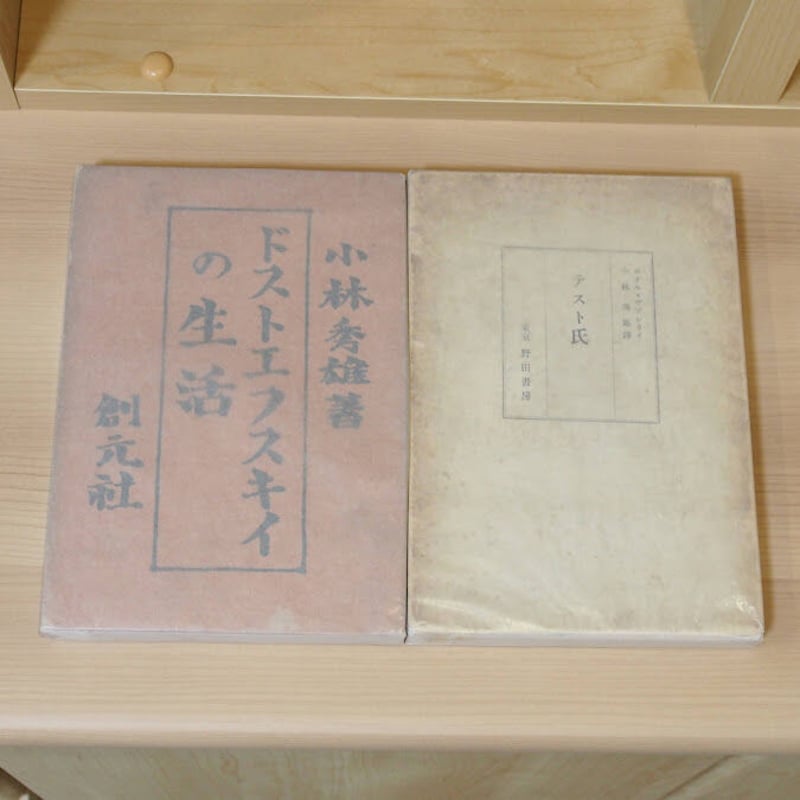 小林秀雄著
ドストエフスキイ
の生活
創元社
ポオル・ヴァレリイ
小林秀雄譯
テスト氏
東京 野田書房